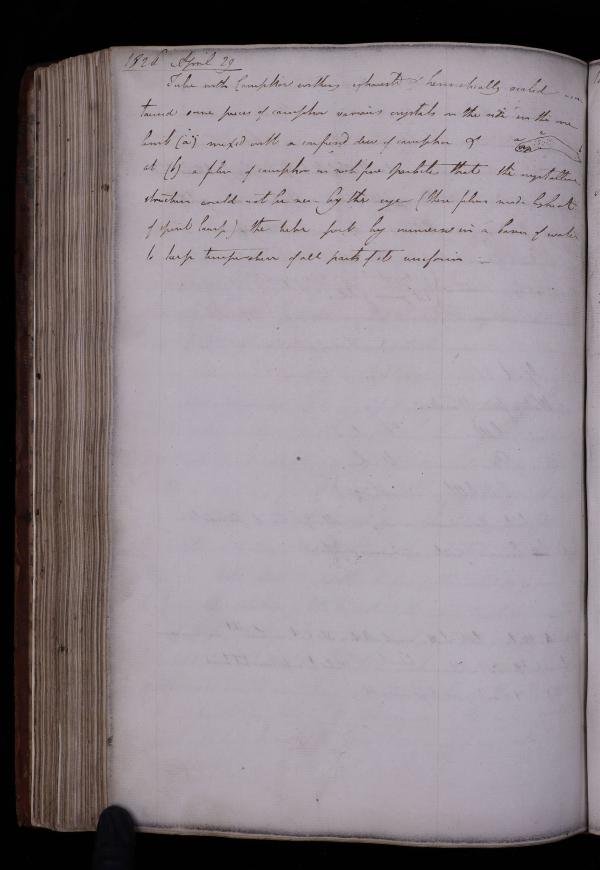 April 29
Tube with Camphor within exhausted & hermetically sealed con
tained some pieces of camphor various crystals on the side in the one
limb (a) mixed with a confused dew of camphor &
at (b) a film of camphor
structure could not be seen by the eye (these films made by heat
of spirit lamp) the tube put by immersed in a basin of water
to keep temperature of all parts of it uniform